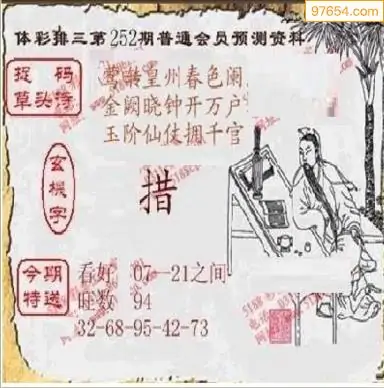 97654.com
体彩排三第252期普通会员预测资料
捉码
草头诗
莺啭皇州春色阑
金阙晓钟开万户
玉阶仙仗拥千官
玄機字
措
今期
特送
看好 07—21之间
旺数 94
32-68-95-42-73